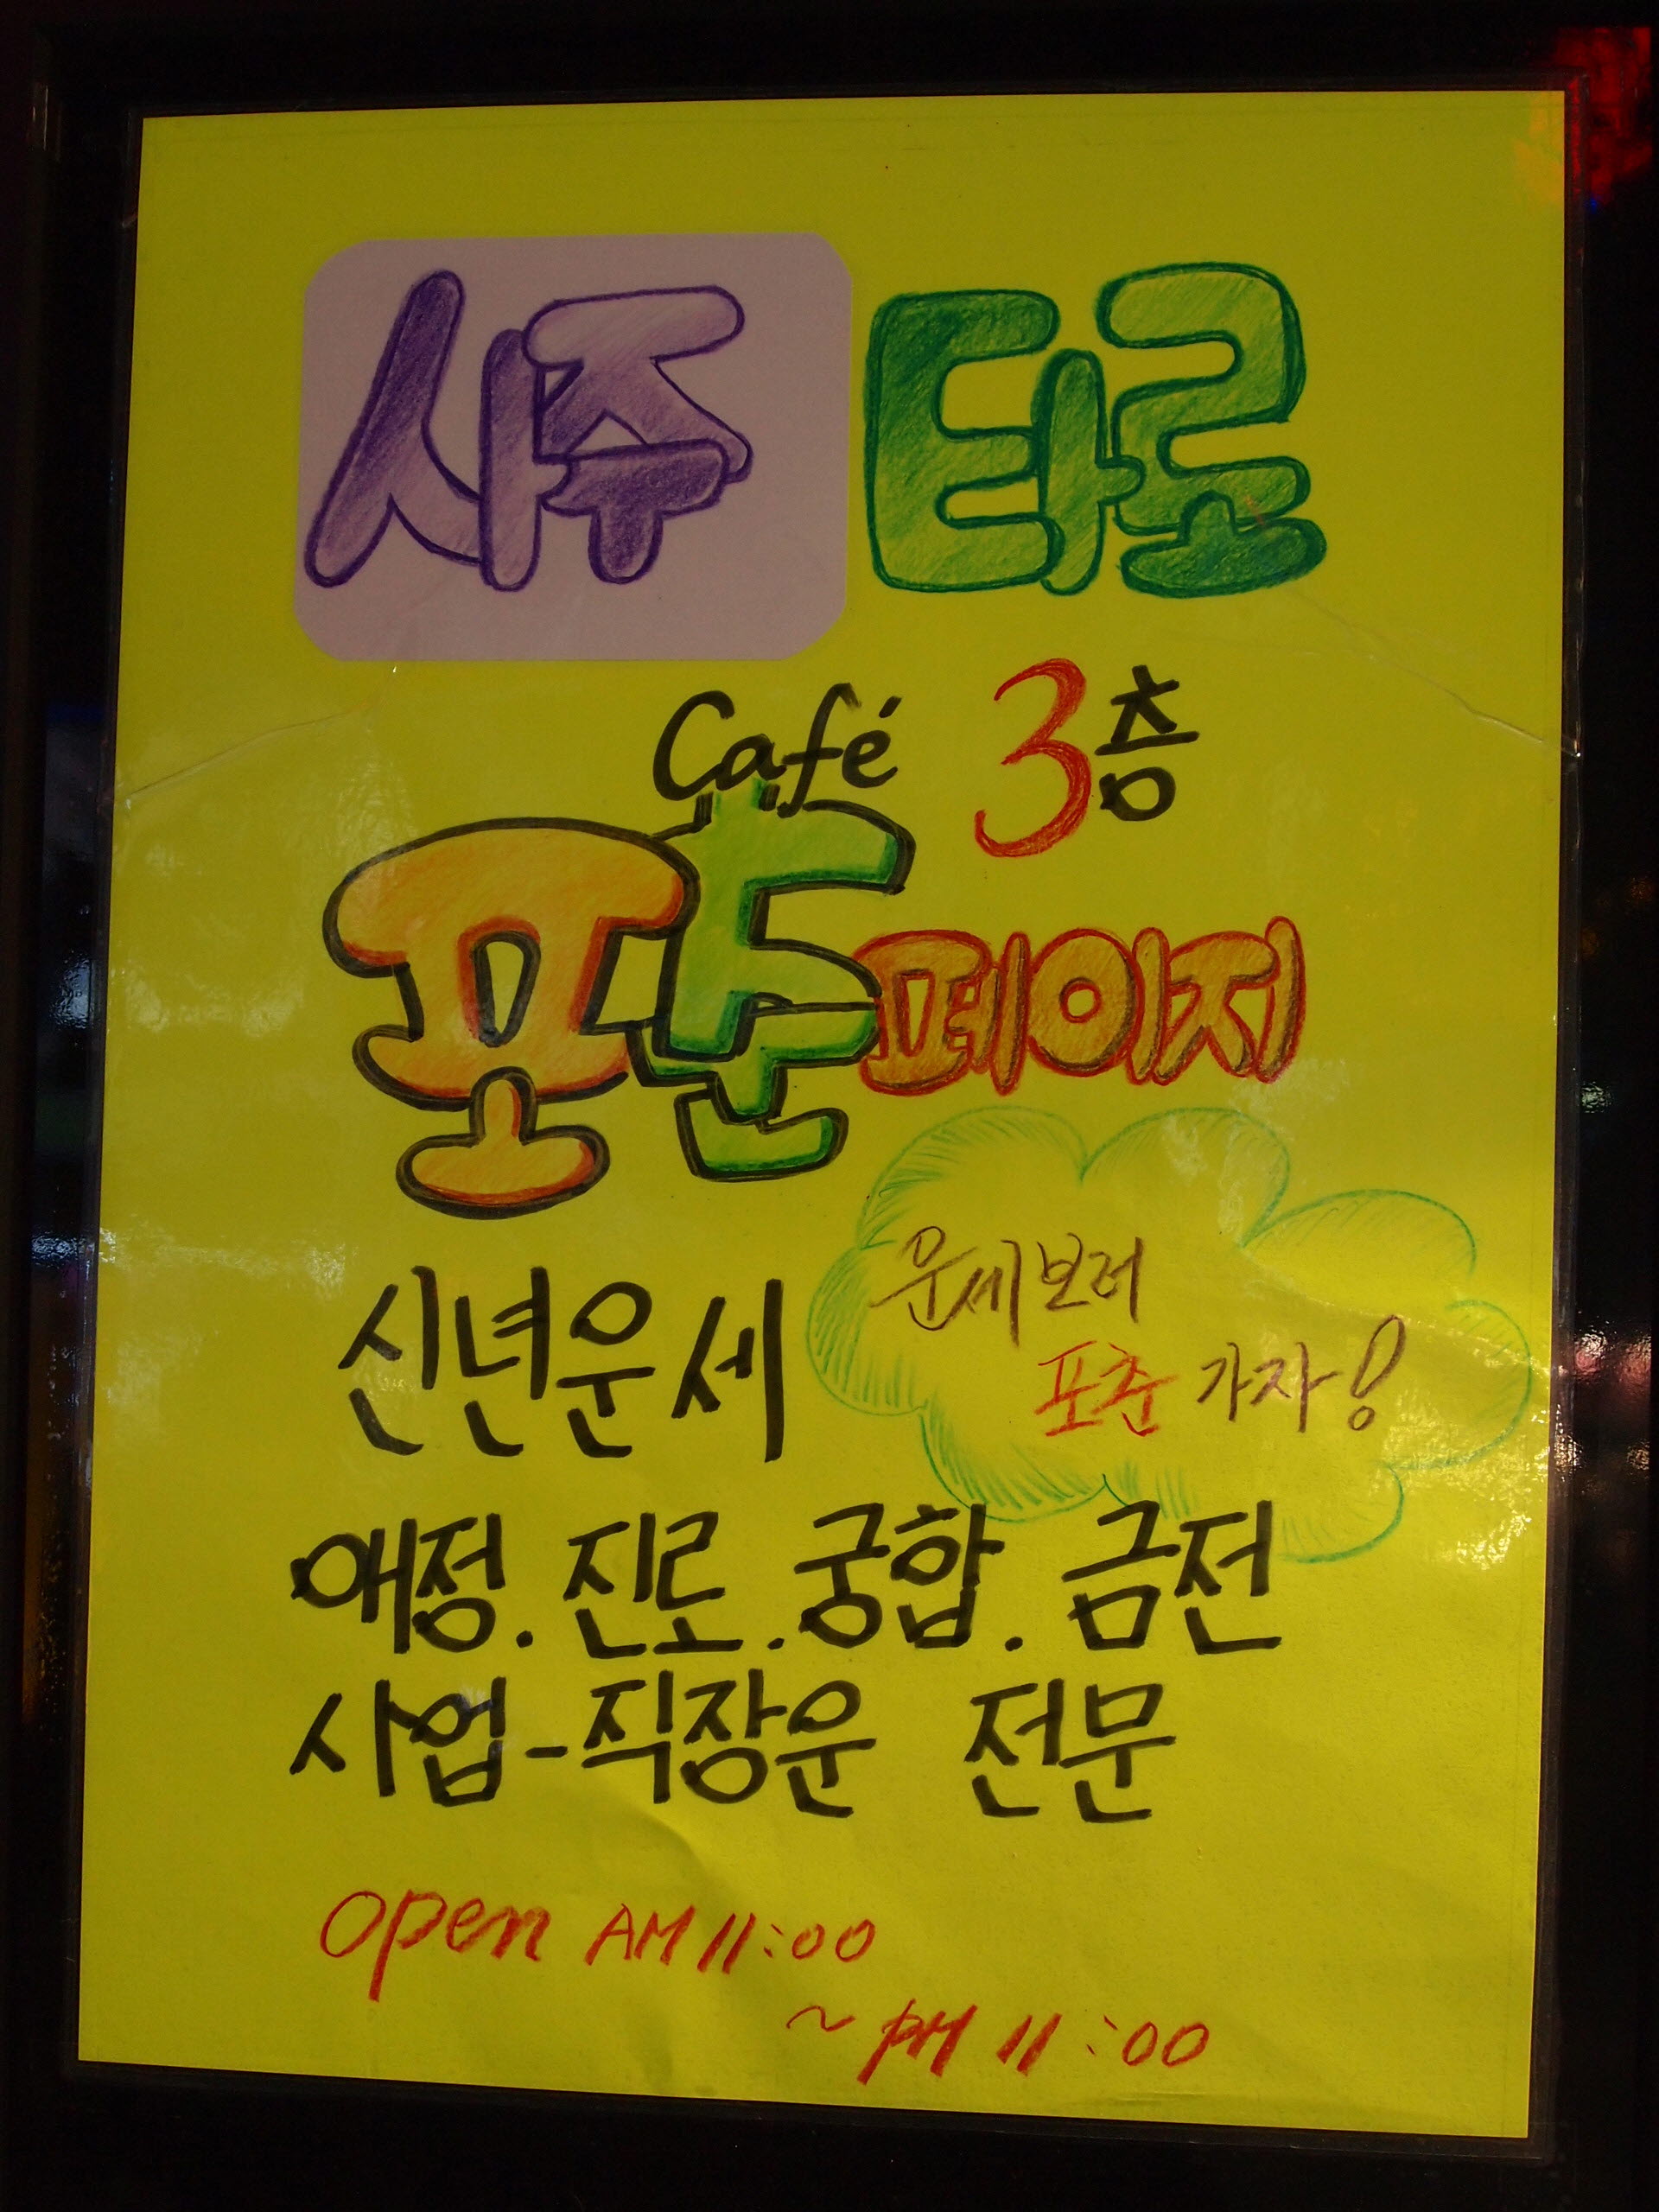 사주 타로
Café 3층
포춘페이지
신년운세
운세보러
포춘 가자!
애정. 진로. 궁합. 금전
사업-직장운 전문
open AM 11:00
~ PM 11:00